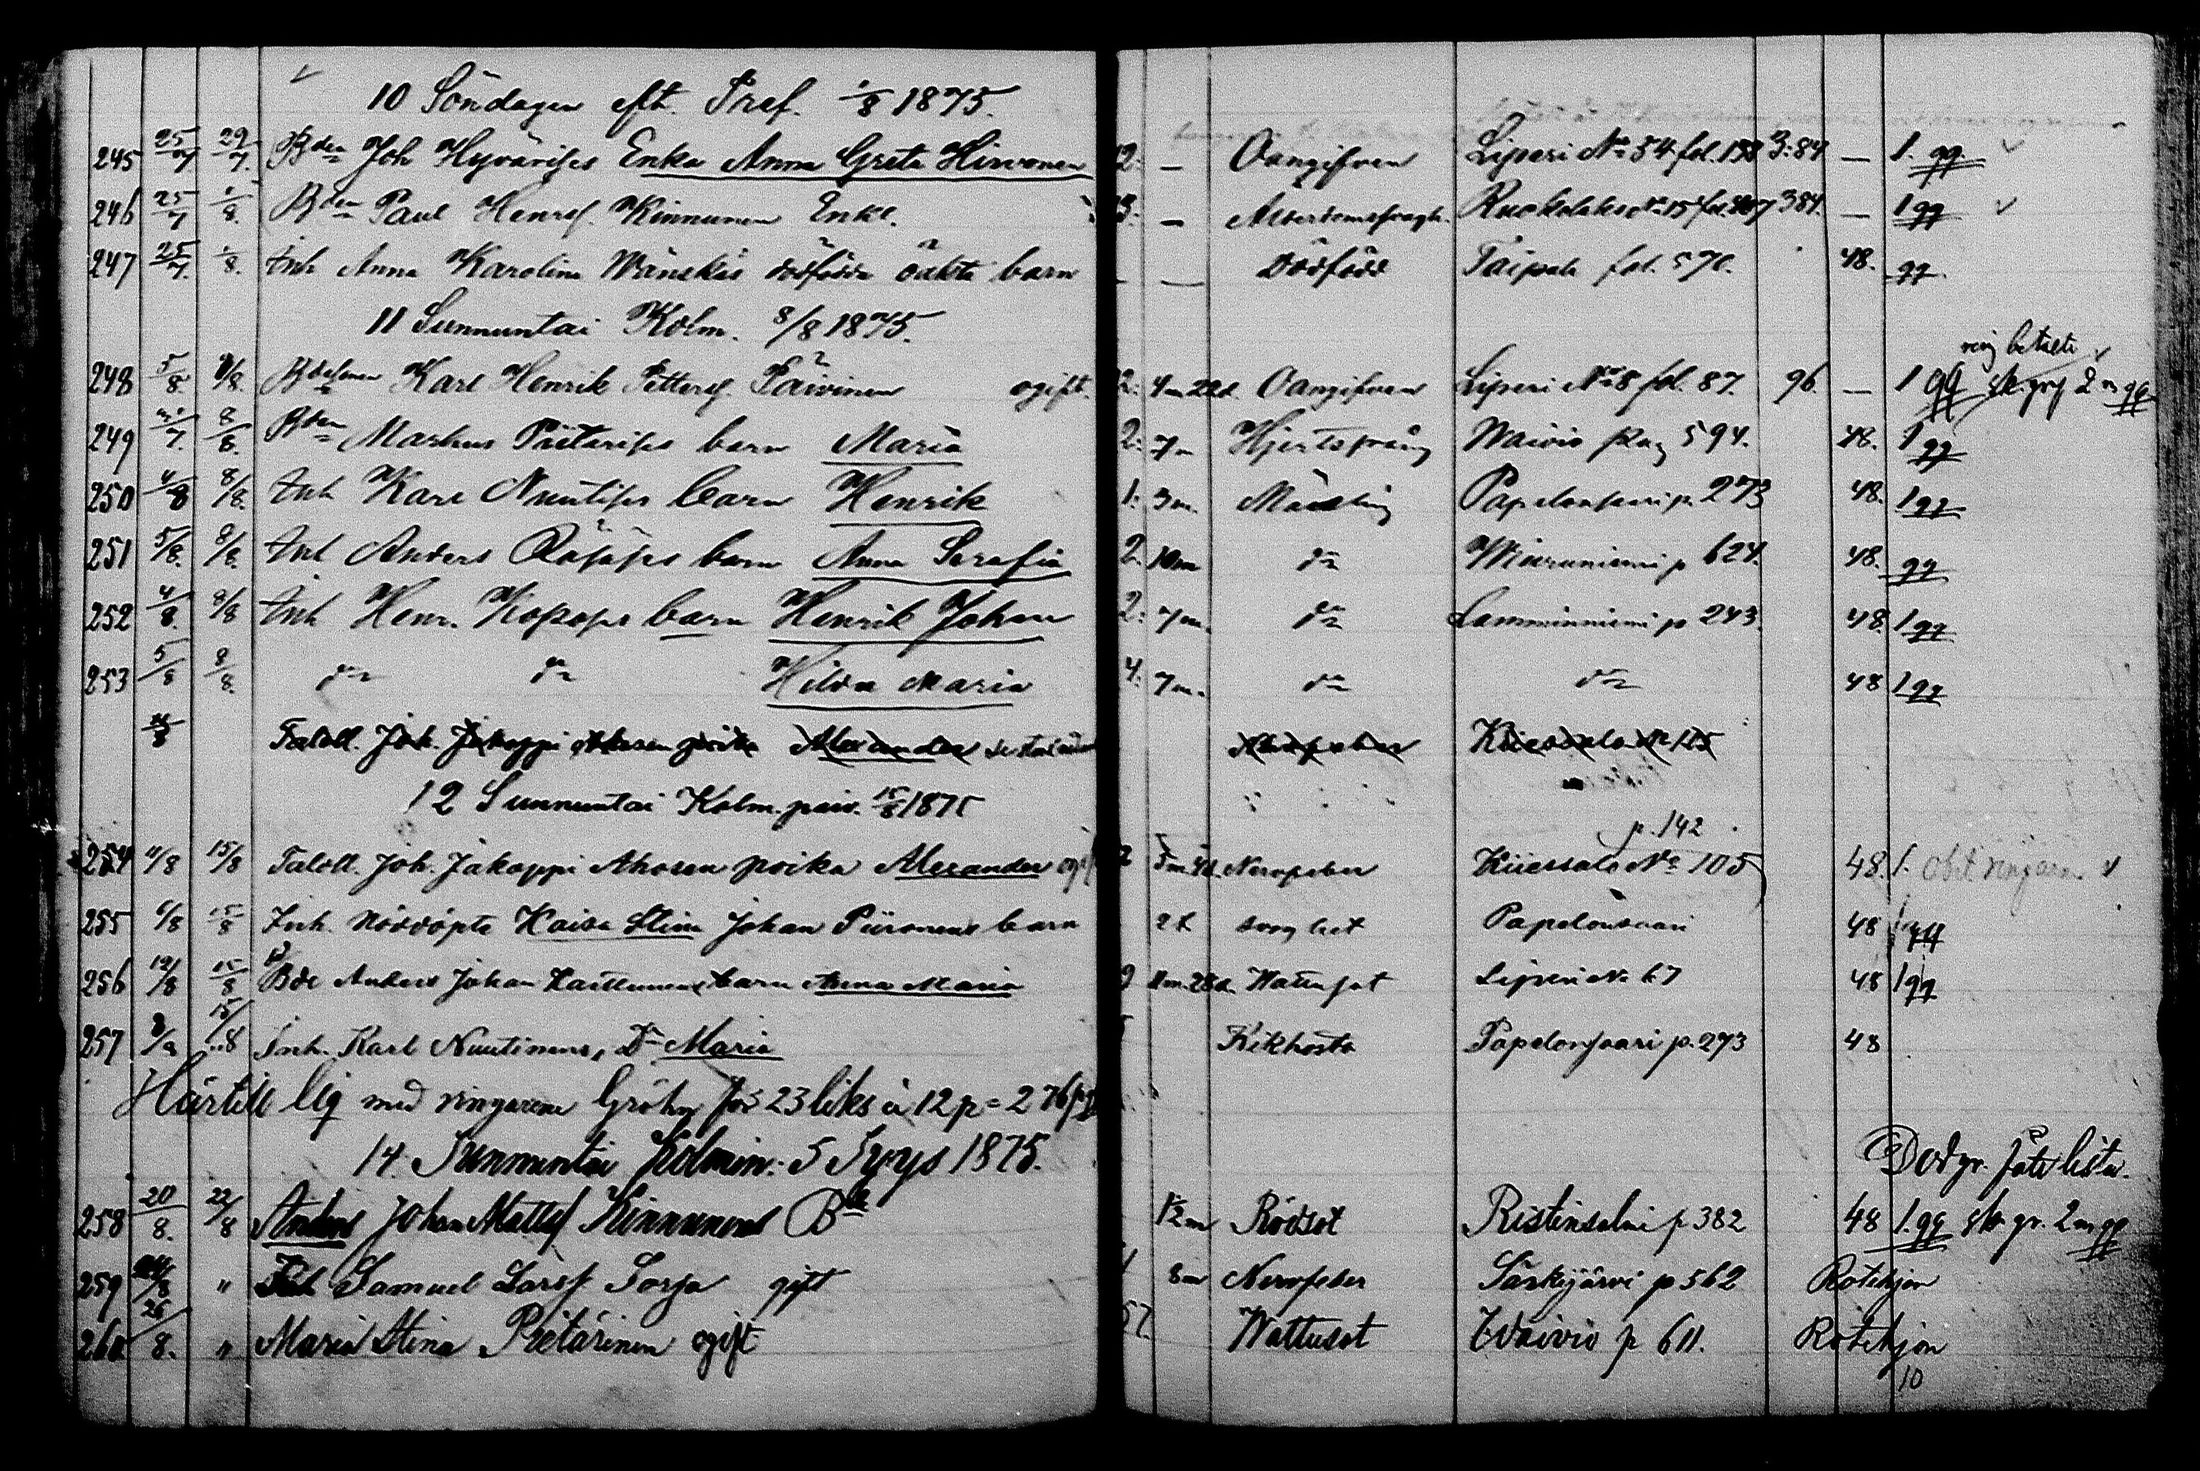 10 Söndagen eft. Tref. 1/8 1875.
245 25/7 29/7 Bden Joh Hyvärises Enka Anna Greta Hirvonen 2. — Oangifven Liperi No 54 fol. 153 3:84 — 1. qq
246 25/7 1/8 Bden Paul Henrsf. Kinnunen Enkl. 3. — Ålderdomssvagh. Ruokolaks No 15 384. — 1 qq
247 25/7 1/8 Inh Anna Karolina Wänskäs dödfödda oäkta barn — — Dödfödd Taipale fol. 570. 48. qq
11 Sunnuntai Kolm. 8/8 1875.
ring betalt
248 5/8 8/8 Bdesonen Karl Henrik Pettersf. Päivinen ogift. 2. 4m 22d. Oangifven Liperi No 8 fol. 87. 96. — 1 qq gr 2 m qq
249 31/7 8/8 Bden Markus Pietarises barn Maria 2. 7m Hjertsprång Waivio pag 594. 48. 1 qq
250 4/8 8/8 Inh Karl Nuutises barn Henrik 1. 3m. Mässling Papelonsaari p. 273 48. 1 qq
251 5/8. 8/8 Inh Anders Räsäses barn Anna Serafia 2. 10m do Wieruniemi p 624. 48. qq
252 4/8. 8/8 Inh Henr. Kososes barn Henrik Johan 2. 7m. do Lamminniemi p 243. 48. 1 qq
253 5/8 8/8. do do Hilda Maria 4. 7m. do do 48 1 qq
Taloll. Joh. Jakoppi Ahosen poika Alexander Nervfeber Kiiessalo No 105
12 Sunnuntai Kolm. päiv. 15/8 1875
p. 142
254 11/8 15/8 Taloll. Joh. Jakoppi Ahosen poika Alexander 2 5m 4d. Nervfeber Kiiessalo No 105 48. 1. obet ringaren
255 6/8 15/8 Inh. nöddöpta Kaisa Stina Johan Piironens barn Papelonsaari 48 1 qq
256 12/8 15/8 Bde Anders Johan barn Anna Maria 9 11m. 28d. Wattusot Liperi No 67 48 1 qq
257 15/8 Inh. Karl Nuutinens, Do Maria Kikhosta Papelonsaari p. 273 48
Härtill liq med ringarene Gröhn för 23 liks à 12 p = 276 p
14. Sunnuntai Kolmin: 5 Syys 1875.
Dödgr. före lista.
258 20/8. 22/8 Anders Johan Mattsf Kinnunens Bde 1/2 m Rödsot Ristinsalmi p 382 48 1. qq gr. 2 m qq
259 24/8 " Inh Samuel Larsf Sorsa gift 8m Nervfeber Särkijärvi p 562 Rotehjon
260 26/8. " Maria Stina Pietärinen ogift 57 Wattusot Waivio p 611. Rotehjon
10